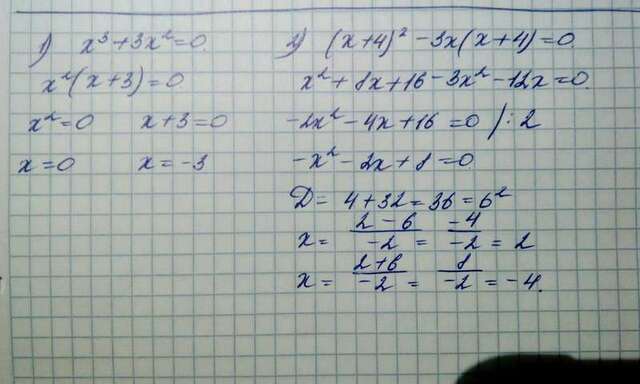 1) x³+3x²=0.
x²(x+3)=0
x²=0 x+3=0
x=0 x=-3
2) (x+4)²-3x(x+4)=0.
x²+8x+16-3x²-12x=0.
-2x²-4x+16=0 /:2
-x²-2x+8=0.
D= 4+32=36=6²
x= (2-6)/(-2) = (-4)/(-2) = 2
x= (2+6)/(-2) = 8/(-2) = -4.